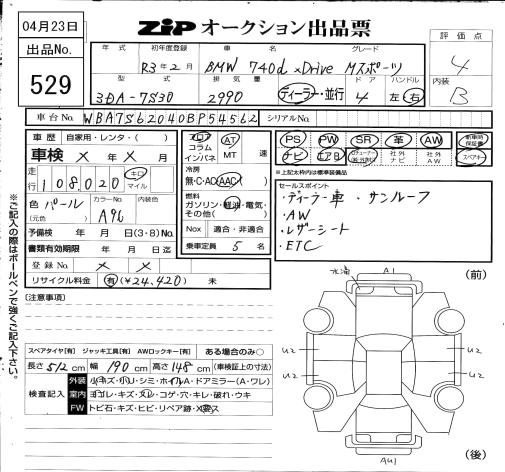 04月23日
出品No.
529
ZIP オークション出品票
評価点
4
内装
B
年式 初年度登録 車名 グレード
R3年2月 BMW 740d xDrive Mスポーツ
型式 排気量 ドア ハンドル
3DA-7S30 2990 ディーラー・並行 4 左 右
車台No. WBA7S62040BP54562 シリアルNo.
車歴 自家用・レンタ・( )
車検 × 年 × 月
走行 108,020 キロ マイル
色 パール カラーNo. A96
(元色)
予備検 年 月 日(3・8)No.
書類有効期限 年 月 日迄
登録No. × ×
リサイクル料金 有(¥24,420) 未
フロア コラム インパネ
AT MT 速
冷房
無・C・AC・AAC
燃料
ガソリン・軽油・電気・その他( )
Nox 適合・非適合
乗車定員 5 名
PS PW SR 革 AW
ナビ エアB 社外ナビ 社外AW
新車時保証書
スペアキー
※上記太枠内は標準装備品
セールスポイント
・ディーラー車 ・サンルーフ
・AW
・レザーシート
・ETC
(注意事項)
スペアタイヤ[有] ジャッキ工具[有] AWロックキー[有] ある場合のみ○
長さ512cm 幅190cm 高さ148cm (車検証上の寸法)
検査記入
外装 小キズ・小U・シミ・ホイルA・ドアミラー(A・ワレ)
室内 ヨゴレ・キズ・スレ・コゲ・穴・キレ・破れ・ウキ
FW トビ石・キズ・ヒビ・リペア跡・X要ス
※ご記入の際はボールペンで強くご記入下さい。
水滴
A1
(前)
U2 U2
U2 U2
AU1
(後)